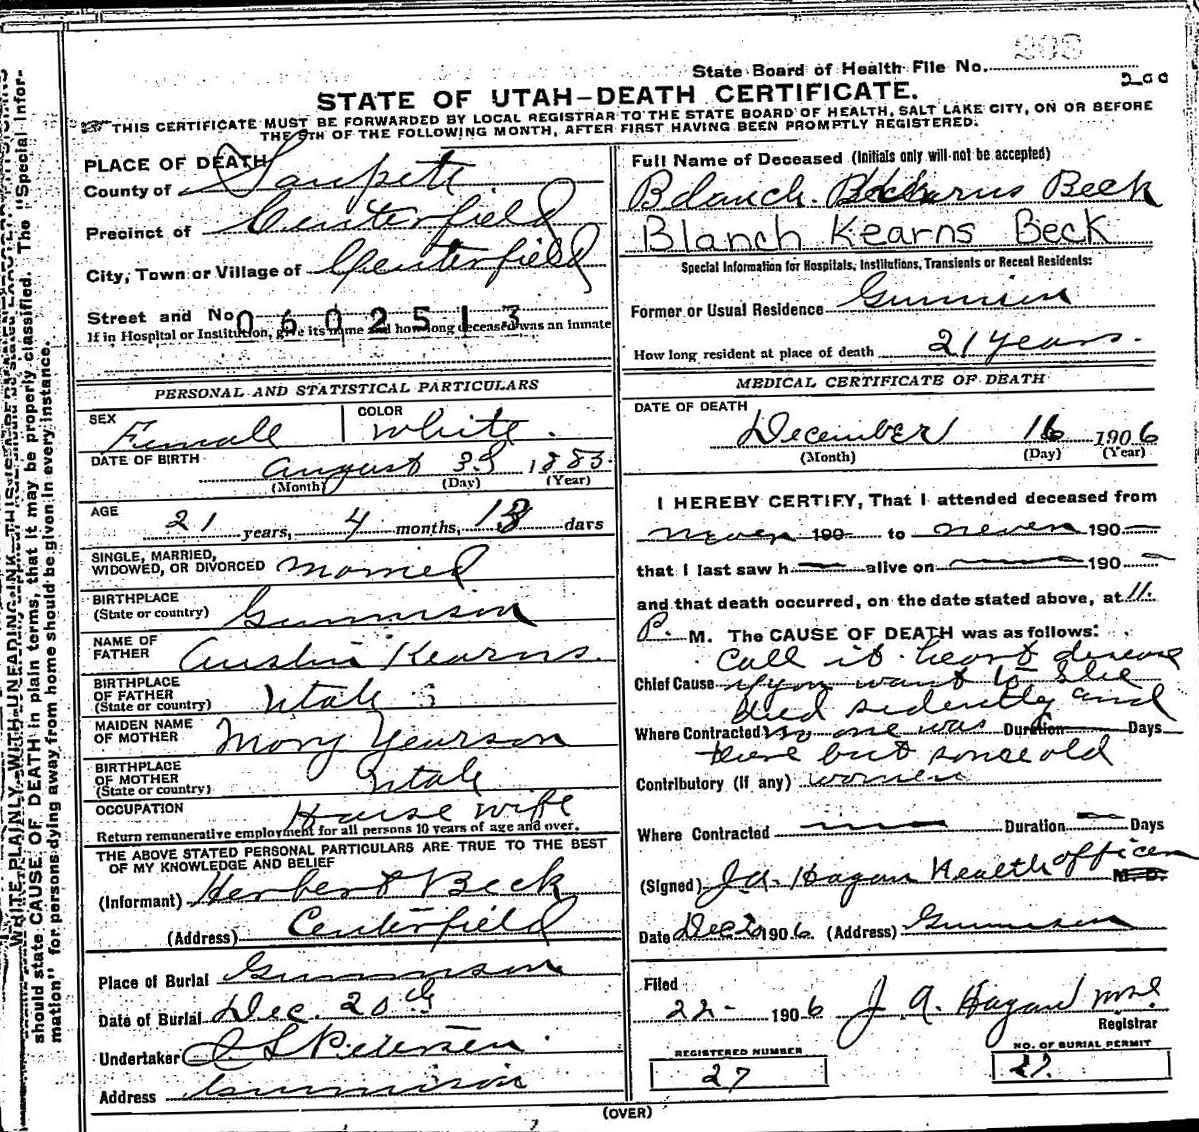 State Board of Health File No. 203
200
STATE OF UTAH—DEATH CERTIFICATE.
THIS CERTIFICATE MUST BE FORWARDED BY LOCAL REGISTRAR TO THE STATE BOARD OF HEALTH, SALT LAKE CITY, ON OR BEFORE
THE 5TH OF THE FOLLOWING MONTH, AFTER FIRST HAVING BEEN PROMPTLY REGISTERED.
PLACE OF DEATH
County of Sanpete.
Precinct of Centerfield
City, Town or Village of Centerfield
Street and No. 0602513
If in Hospital or Institution, give its name and how long deceased was an inmate
PERSONAL AND STATISTICAL PARTICULARS
SEX Female
COLOR White.
DATE OF BIRTH August 1883.
(Month) (Day) (Year)
AGE 21 years, 4 months, days
SINGLE, MARRIED,
WIDOWED, OR DIVORCED Married
BIRTHPLACE
(State or country) Gunnison
NAME OF
FATHER Austin Kearns.
BIRTHPLACE
OF FATHER
(State or country) Utah
MAIDEN NAME
OF MOTHER Mary
BIRTHPLACE
OF MOTHER
(State or country) Utah
OCCUPATION House wife
Return remunerative employment for all persons 10 years of age and over.
THE ABOVE STATED PERSONAL PARTICULARS ARE TRUE TO THE BEST
OF MY KNOWLEDGE AND BELIEF
(Informant) Herbert Beck
(Address) Centerfield
Place of Burial Gunnison
Date of Burial Dec. 20th
Undertaker Petersen.
Address Gunnison
Full Name of Deceased (Initials only will not be accepted)
Blanch. Beck
Blanch Kearns Beck
Special Information for Hospitals, Institutions, Transients or Recent Residents:
Former or Usual Residence Gunnison
How long resident at place of death 21 years.
MEDICAL CERTIFICATE OF DEATH
DATE OF DEATH
December 16 1906
(Month) (Day) (Year)
I HEREBY CERTIFY, That I attended deceased from
never 190 to never 190
that I last saw h alive on 190
and that death occurred, on the date stated above, at 11.
P. M. The CAUSE OF DEATH was as follows:
Call it heart disease
Chief Cause if you want to She
died sudently and
Where Contracted no one was Duration Days
there but some old
Contributory (if any) women
Where Contracted Duration Days
(Signed) J.A. Hagan Health officer M.D.
Date Dec 1906 (Address) Gunnison
Filed
22- 1906 J. A. Hagan
Registrar
REGISTERED NUMBER
27
NO. OF BURIAL PERMIT
27.
(OVER)
WRITE PLAINLY WITH UNFADING INK—THIS
should state CAUSE OF DEATH in plain terms, that it may be properly classified. The "Special Infor-
mation" for persons dying away from home should be given in every instance.